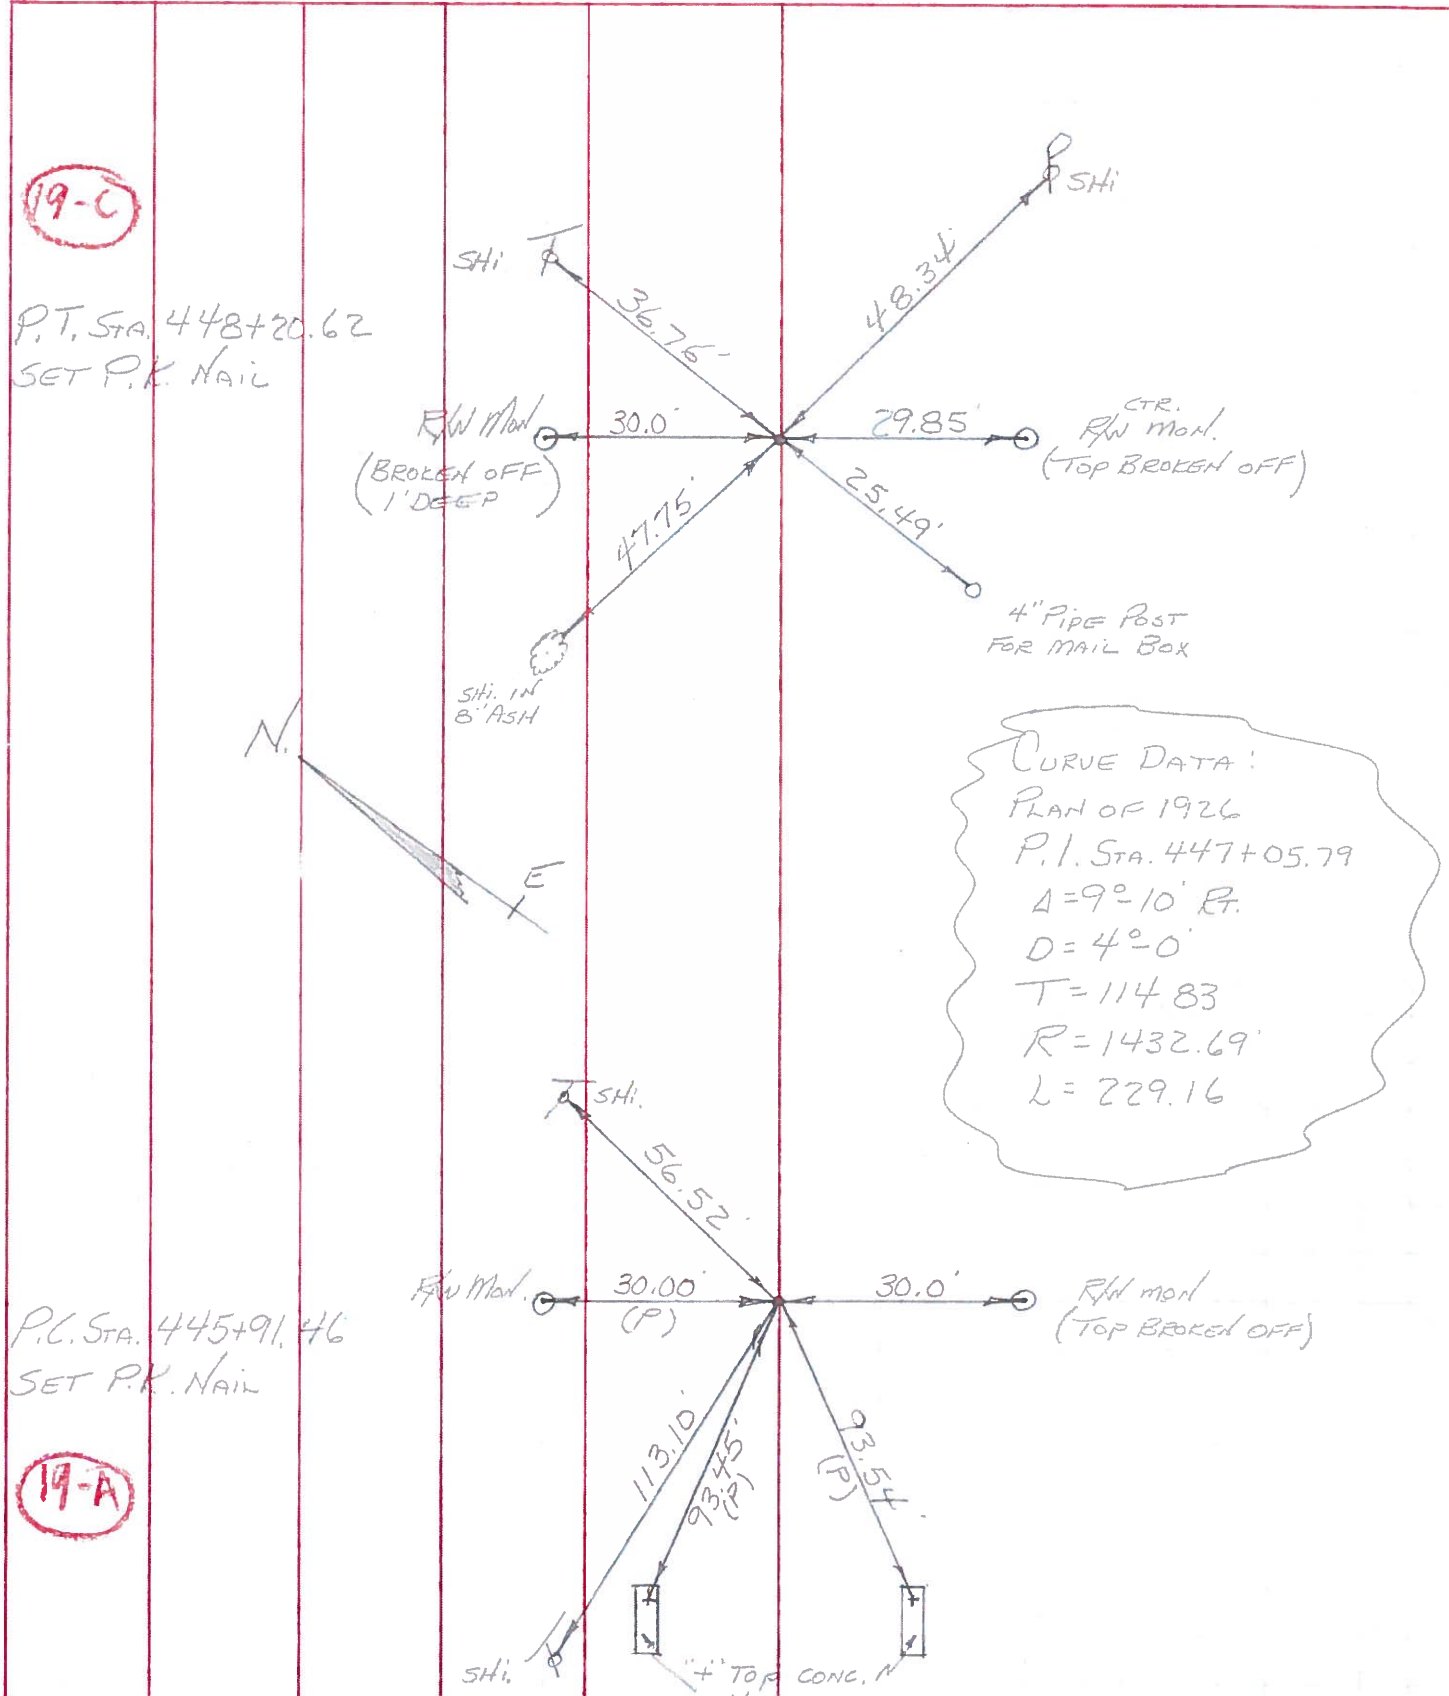 19-C
SHi
SHi
36.76'
48.34'
P.T. STA. 448+20.62
SET P.K. NAIL
R/W MON
(BROKEN OFF
1' DEEP)
30.0'
29.85'
CTR.
R/W MON.
(TOP BROKEN OFF)
47.75'
25.49'
4" PIPE POST
FOR MAIL BOX
SHi. IN
8" ASH
N.
E
CURVE DATA:
PLAN OF 1926
P.I. STA. 447+05.79
Δ=9°-10' RT.
D=4°-0'
T=114.83
R=1432.69'
L=229.16
SHi.
56.52'
R/W MON.
30.00'
(P)
30.0'
R/W MON
(TOP BROKEN OFF)
P.C. STA. 445+91.46
SET P.K. NAIL
113.10'
93.45'
(P)
93.54'
(P)
19-A
SHi.
"+" TOP CONC.